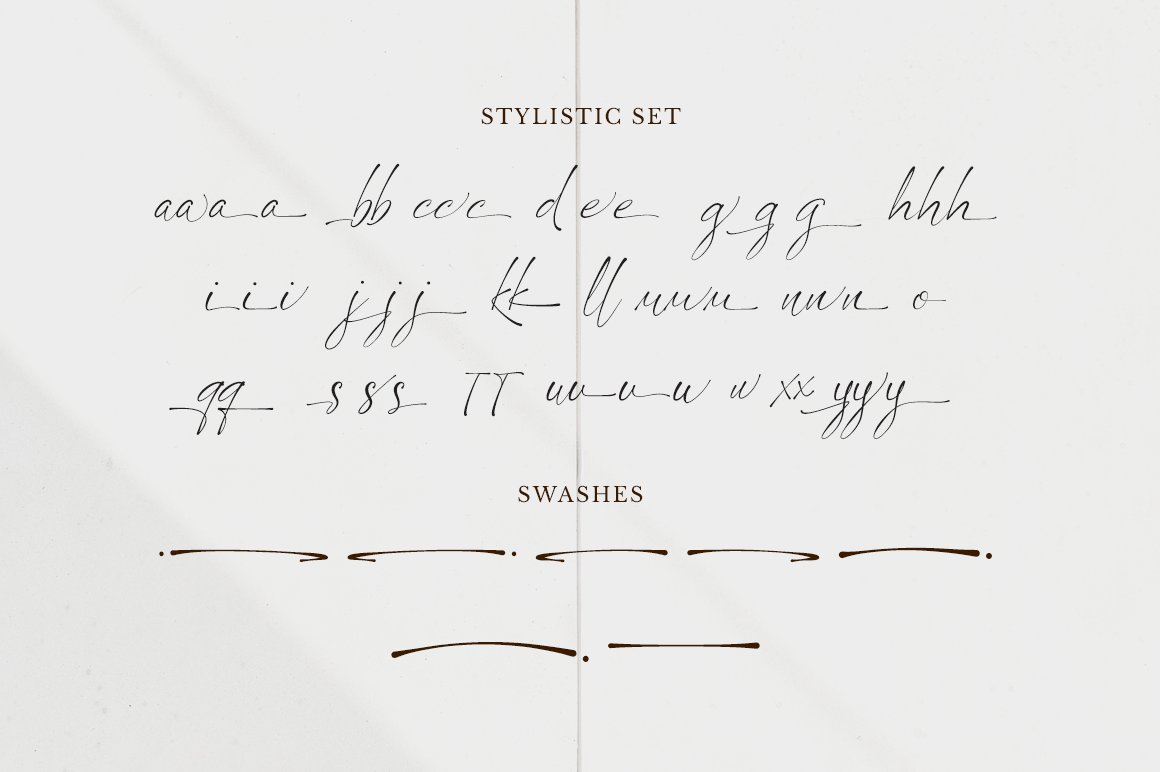 STYLISTIC SET
aaaa bb ccc d ee ggg hhh
iii jjj kk ll mmm nnn o
qq sss TT uuuu w xx yyy
SWASHES